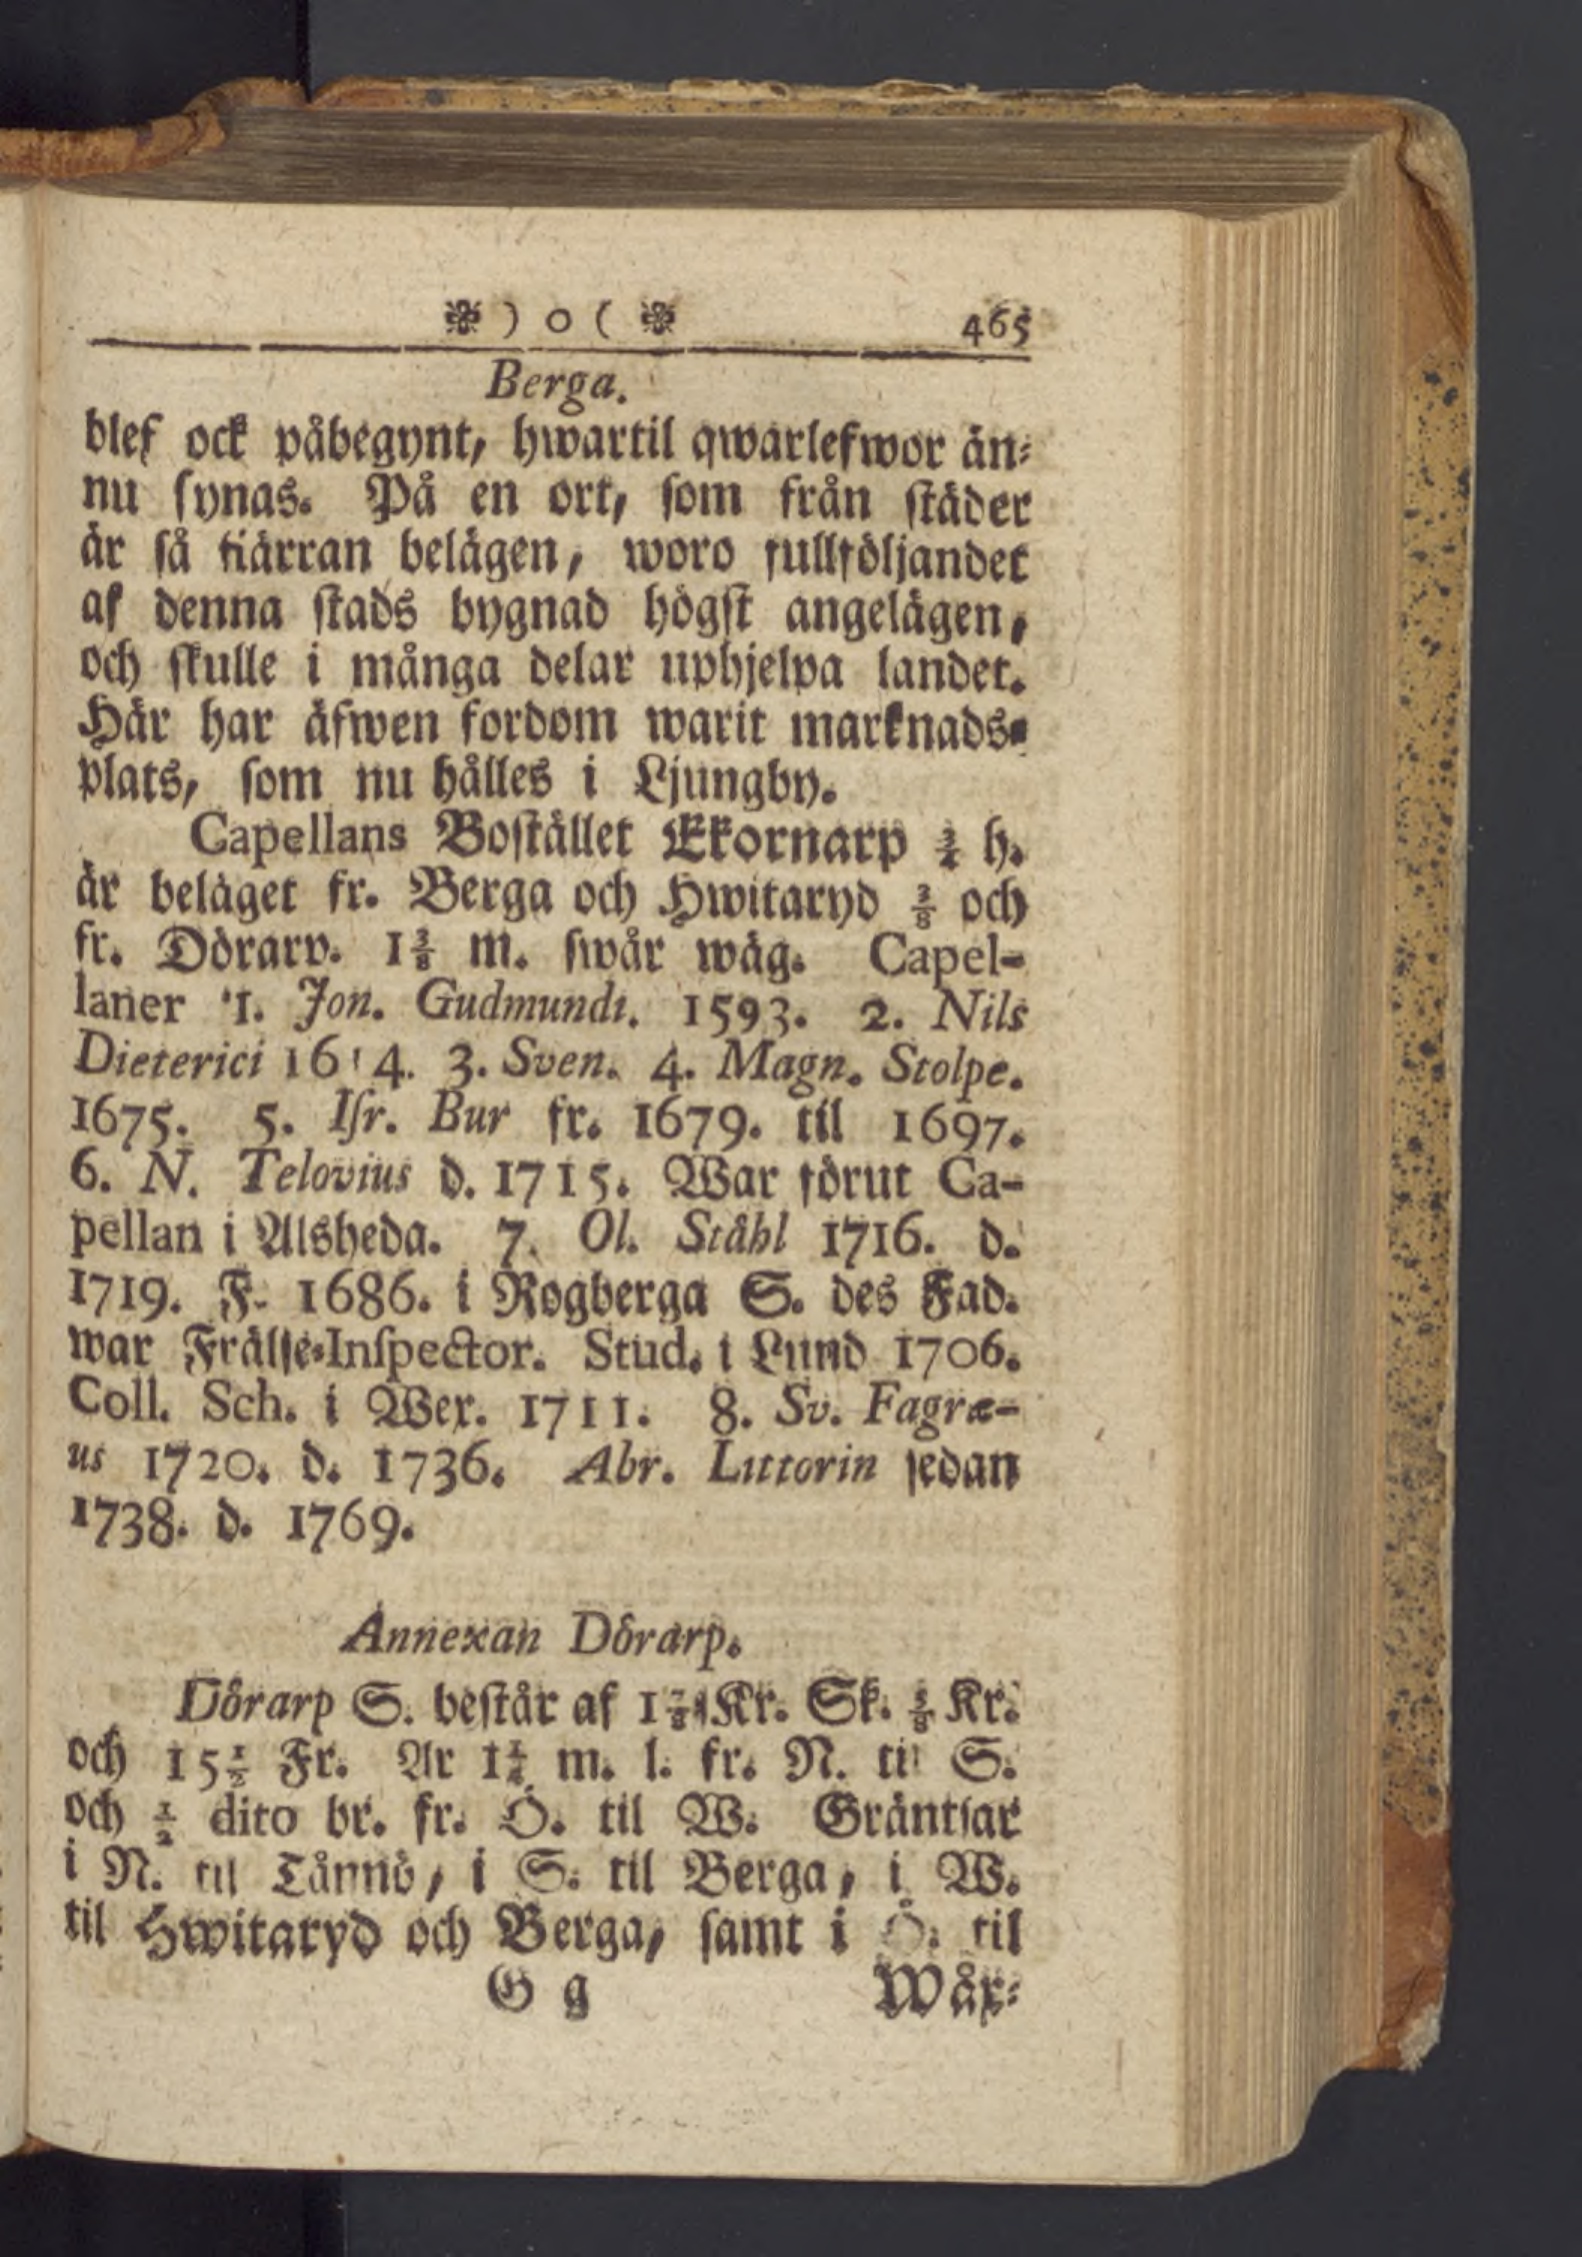 ❃ ) o ( ❃ 465
Berga.
blef ock påbegynt, hwartil qwarlefwor än-
nu synas. På en ort, som från städer
är så fiärran belägen, woro fullföljandet
af denna stads bygnad högst angelägen,
och skulle i många delar uphjelpa landet.
Här har äfwen fordom warit marknads-
plats, som nu hålles i Ljungby.
Capellans Bostället Ekornarp ¾ h.
är beläget fr. Berga och Hwitaryd ⅜ och
fr. Dörarp. 1⅜ m. swår wäg. Capel-
laner 1. Jon. Gudmundi. 1593. 2. Nils
Dieterici 1614. 3. Sven. 4. Magn. Stolpe.
1675. 5. Isr. Bur fr. 1679. til 1697.
6. N. Telovius d. 1715. War förut Ca-
pellan i Alsheda. 7. Ol. Ståhl 1716. d.
1719. F. 1686. i Rogberga S. des Fad.
war Frälse-Inspector. Stud. i Lund 1706.
Coll. Sch. i Wex. 1711. 8. Sv. Fagræ-
us 1720. d. 1736. Abr. Littorin sedan
1738. d. 1769.
Annexan Dörarp.
Dörarp S. består af 1⅞ Kr. Sk. ⅝ Kr.
och 15½ Fr. Är 1¼ m. l. fr. N. til S.
och ½ dito br. fr. Ö. til W. Gräntsar
i N. til Tånnö, i S. til Berga, i W.
til Hwitaryd och Berga, samt i Ö. til
G g Wåx-